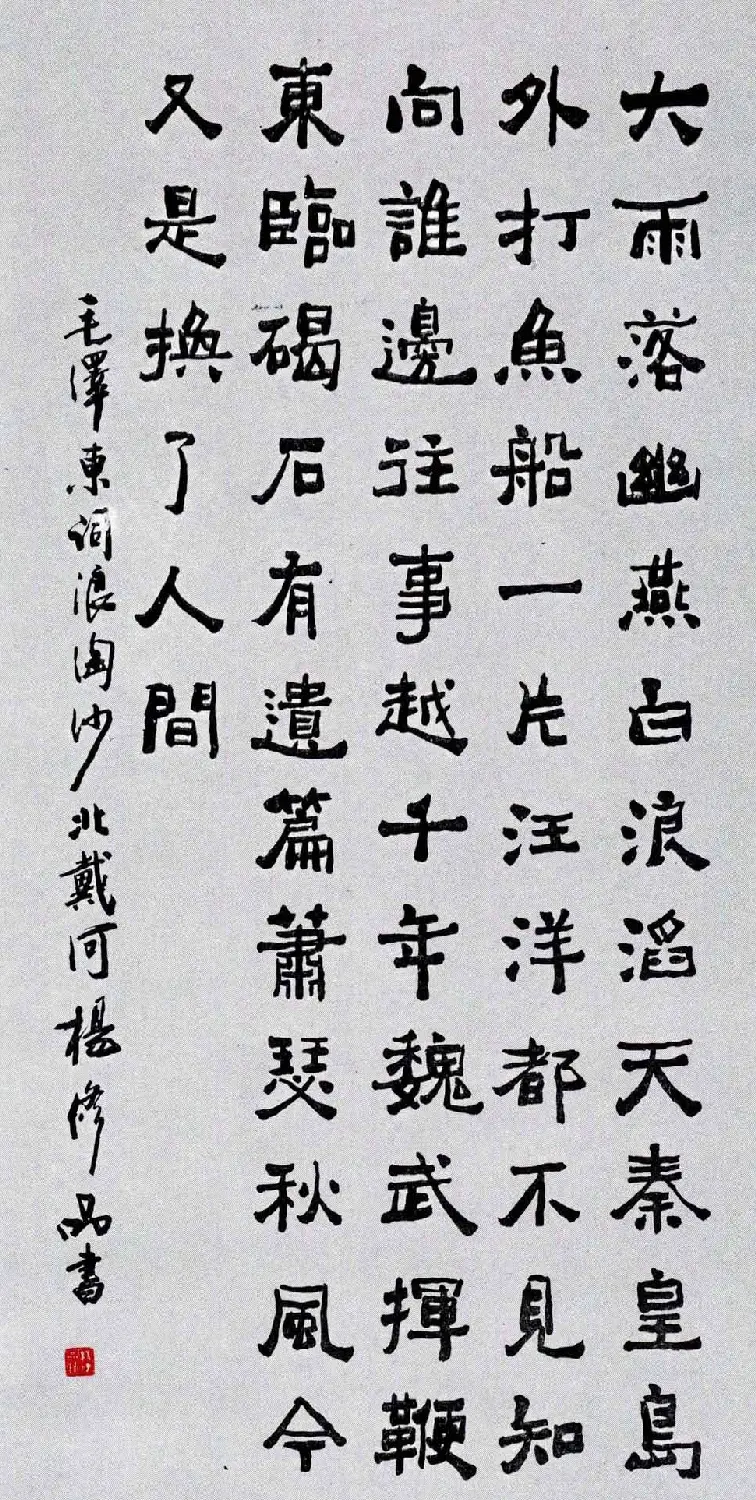 大雨落幽燕白浪滔天秦皇島
外打魚船一片汪洋都不見知
向誰邊往事越千年魏武揮鞭
東臨碣石有遺篇蕭瑟秋風今
又是換了人間
毛澤東詞浪淘沙北戴河楊修品書